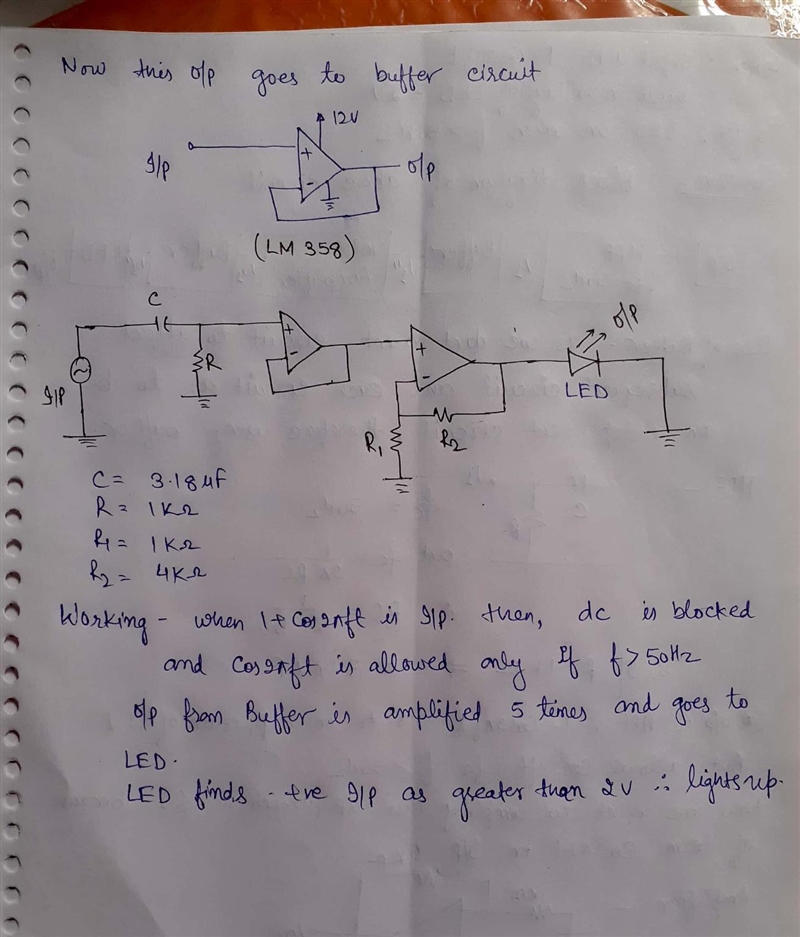 Now this o/p goes to buffer circuit
12V
I/p
+
-
o/p
(LM 358)
C
R
I/P
+
-
+
-
R1
R2
o/p
LED
C = 3.18 μf
R = 1KΩ
R1 = 1KΩ
R2 = 4KΩ
Working - when 1+Cos2πft is I/p. then, dc is blocked
and Cos2πft is allowed only If f>50Hz
o/p from Buffer is amplified 5 times and goes to
LED.
LED finds +ve I/p as greater than 2V ∴ lights up.